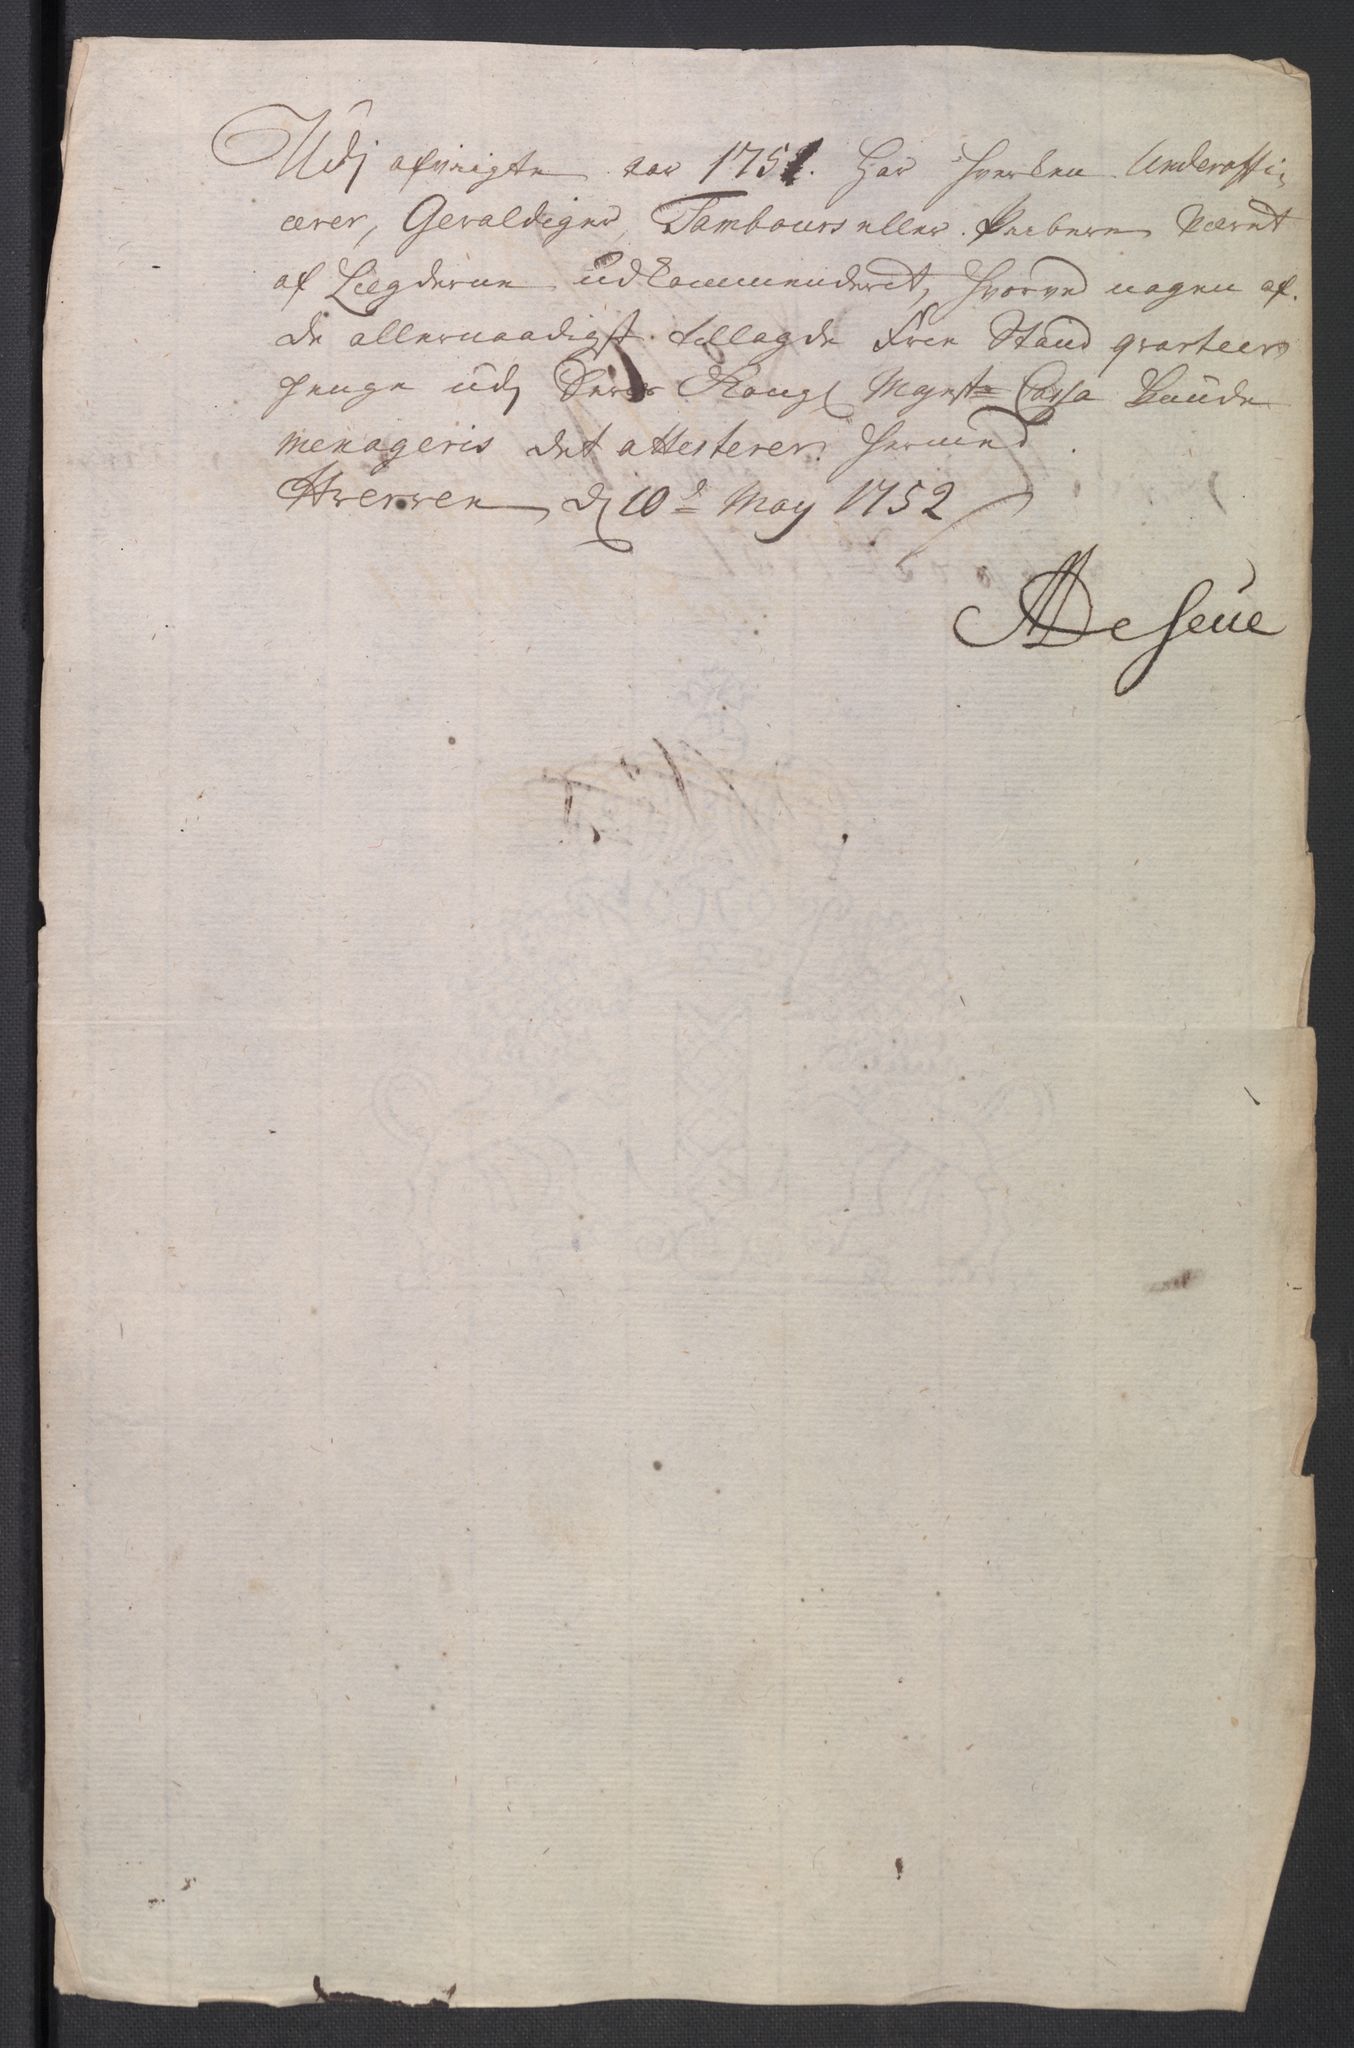 Udj afvigte aar 1751. har hverken Underoffi-
cerer, Gevaldiger, Tambours eller Peibere Været
af Lægderne udkommenderet, hvorved nogen af
de allernaadigst tillagde Frie Stand qvarteers
penge udj Deres Kongl Mayst: Cassa Kunde
menageris det attesterer hermed
Hverven d 10de May 1752
ADeseue